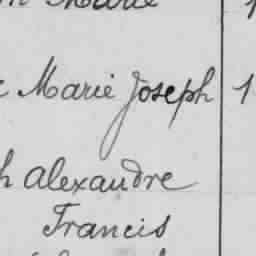 Marie
Marie Joseph 1
h Alexandre
Francis